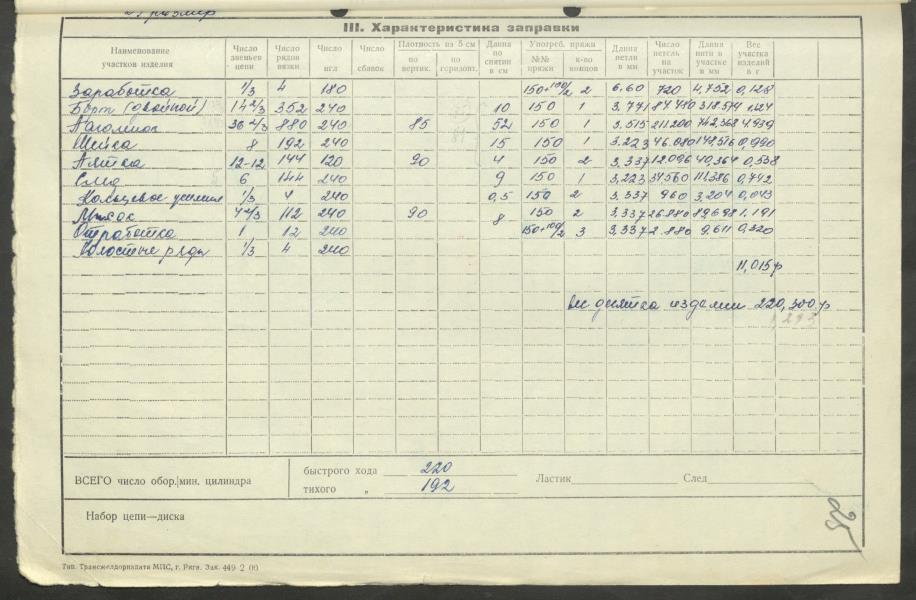 размер
III. Характеристика заправки
Наименование участков изделия | Число звеньев цепи | Число рядов вязки | Число игл | Число сбавок | Плотность на 5 см по вертик. | по горизонт. | Длина по снятии в см | Употреб. пряжи №№ пряжи | к-во концов | Длина петли в мм | Число петель на участок | Длина нити в участке в мм | Вес участка изделий в г
Заработка 1/3 4 180 150+100/2 2 6.60 720 4,752 0,128
Борт (двойной) 14 2/3 352 240 10 150 1 3,771
Паголенок 36 2/3 880 240 85 52 150 1 3,515 211.200 742,368 4,939
Шейка 8 192 240 15 150 1 3.223 46.080 148,516 0,990
Пятка 12-12 144 120 90 4 150 2 3,337 12.096 40,364 0,538
След 6 144 240 9 150 1 3,223 34560 111,386 0,742
Кольцевое усиление 1/3 4 240 0,5 150 2 3,337 960 3,204 0,043
Мысок 4 2/3 112 240 90 8 150 2 3,337 26.880 89698 1,191
Отработка 1 12 240 150+100/2 3 3,337 2.880 9,611 0,320
Холостые ряды 1/3 4 240
11,015 г
Вес десятка изделий 220,300 г
ВСЕГО число обор. мин. цилиндра
быстрого хода 220
тихого „ 192
Ластик
След
Набор цепи—диска
Тип. Трансжелдориздата МПС, г. Рига. Зак. 449 2 (8)